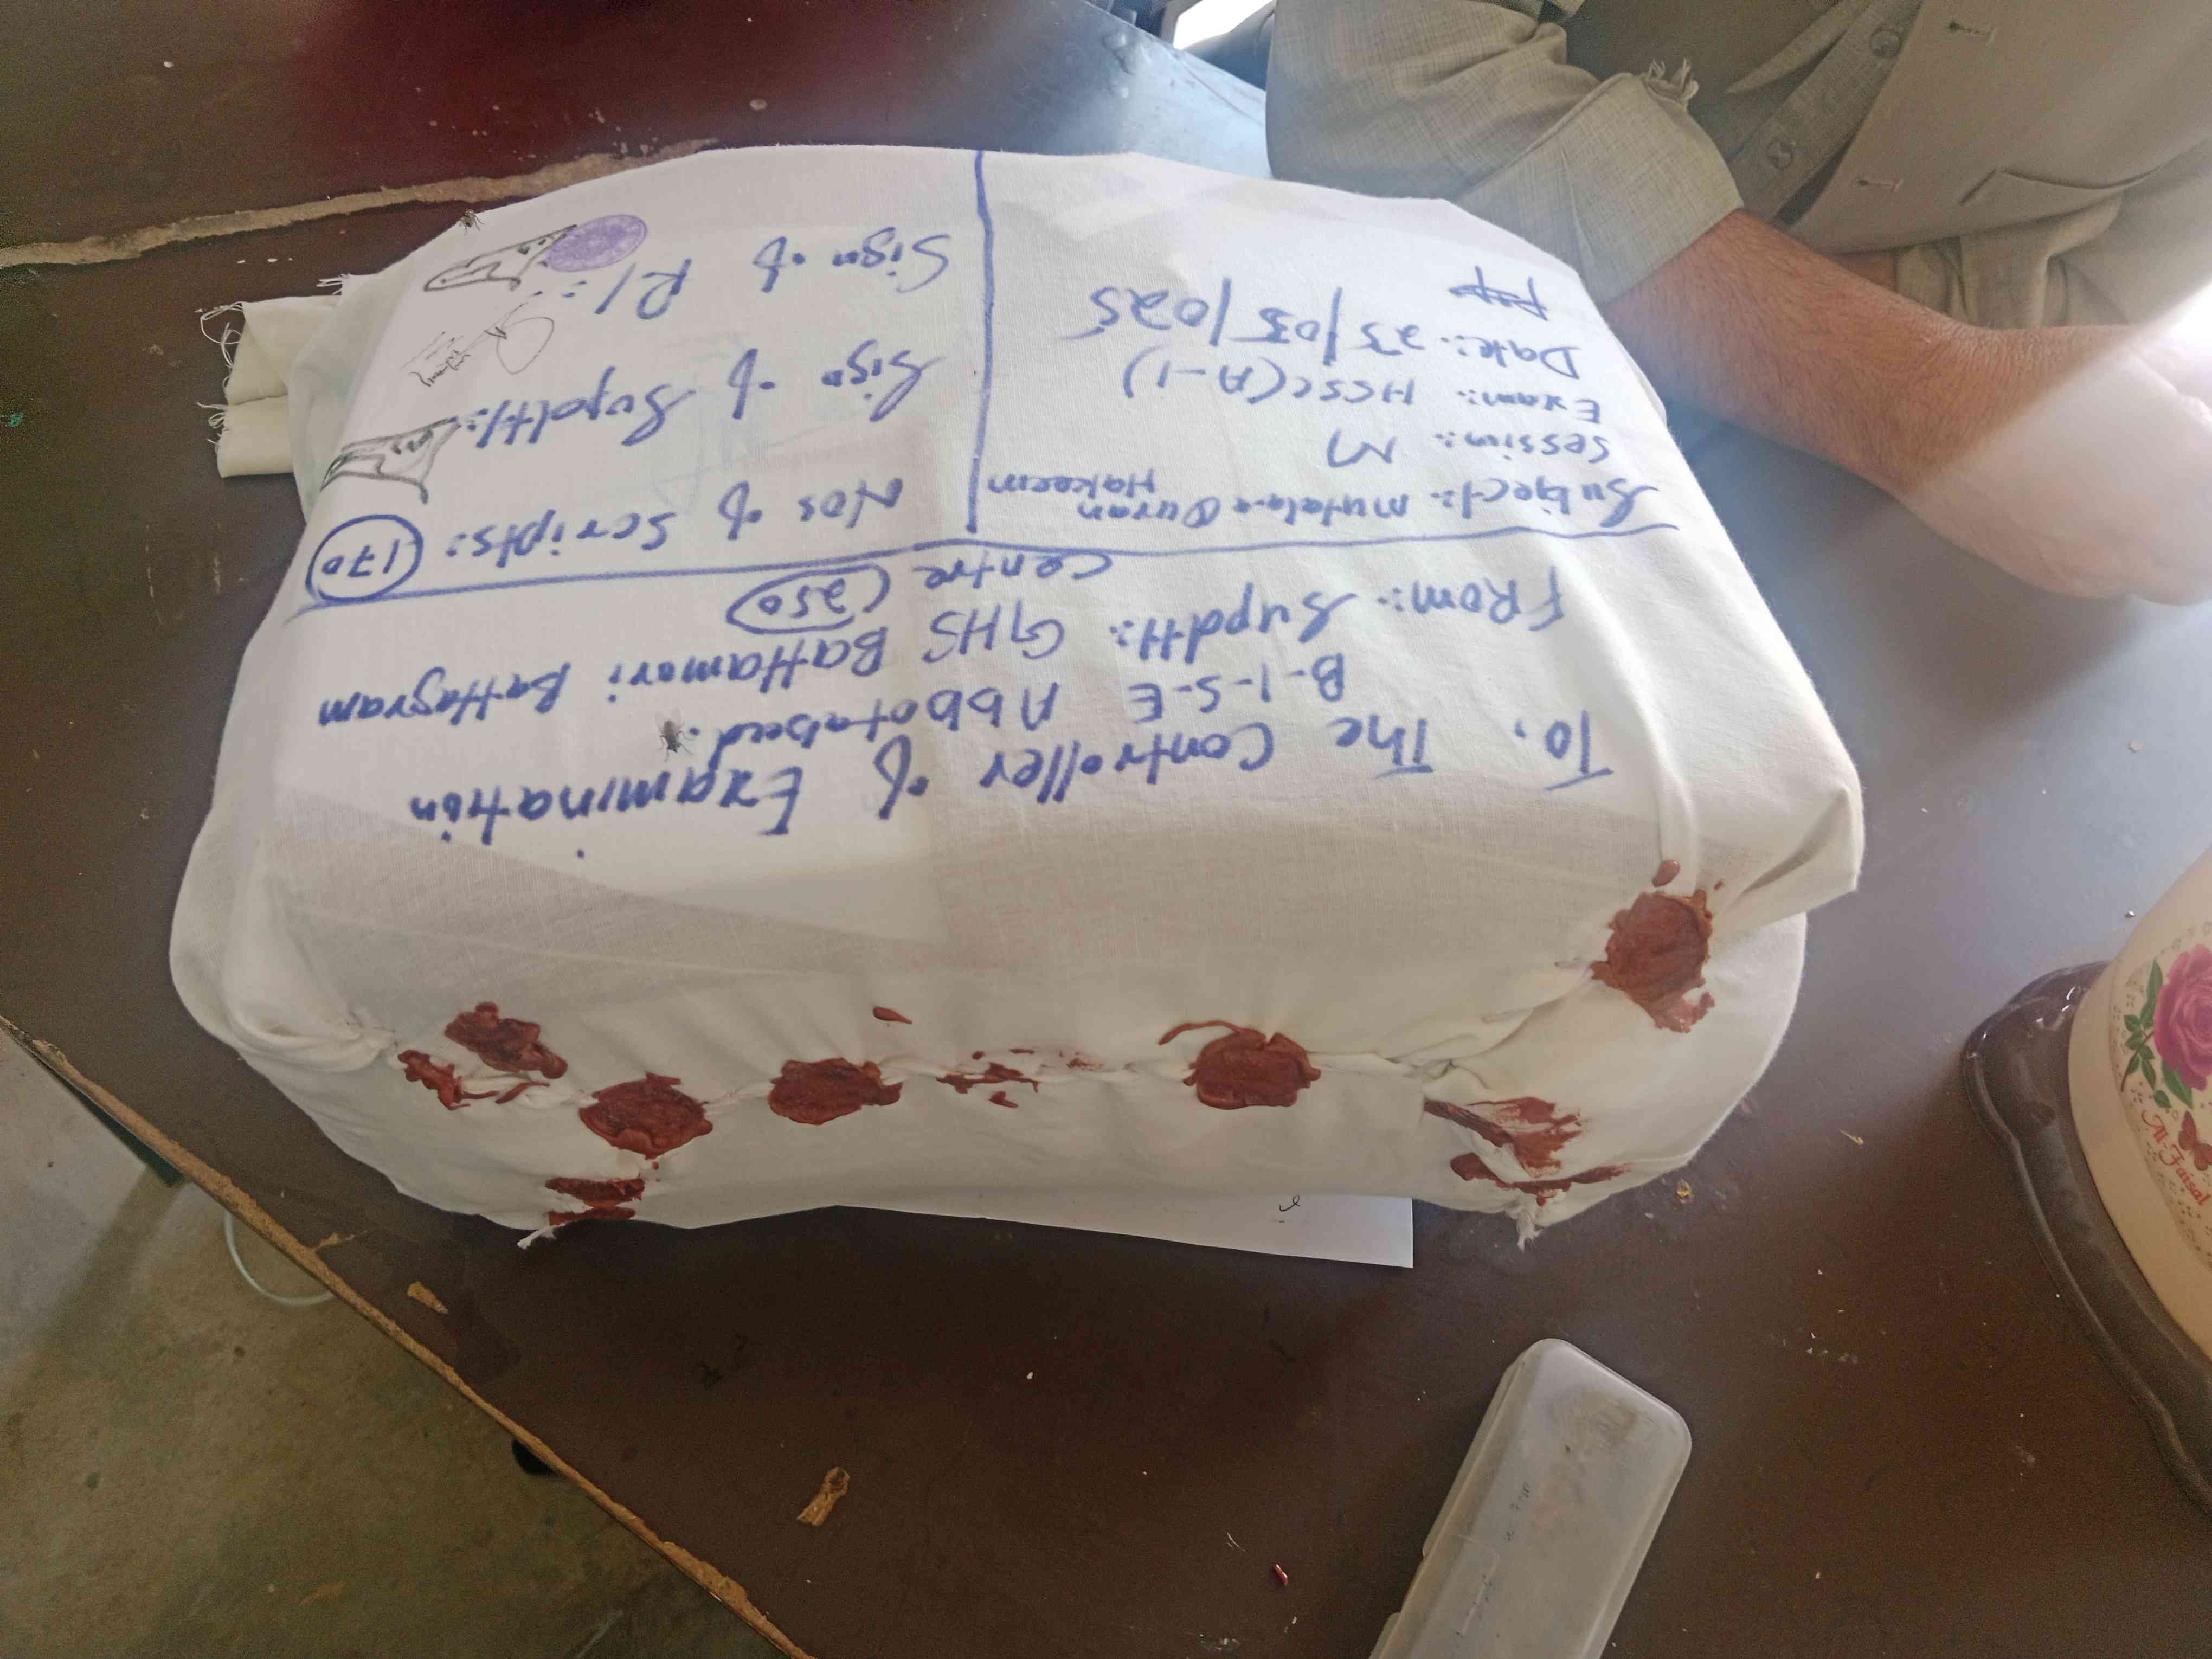 To, The Controller of Examination
B-I-S-E Abbotabad.
FROM:- Supdtt:- GHS Battamori Battagram
Centre (250)
Subject:- Mutala-e Quran
Hakeem
Session:- M
Exam:- HSSC (A-1)
Date:- 23/05/025
Nos of Scripts: 170
Sign of Supdtt:-
Sign of R/I:-
Al-Faisal